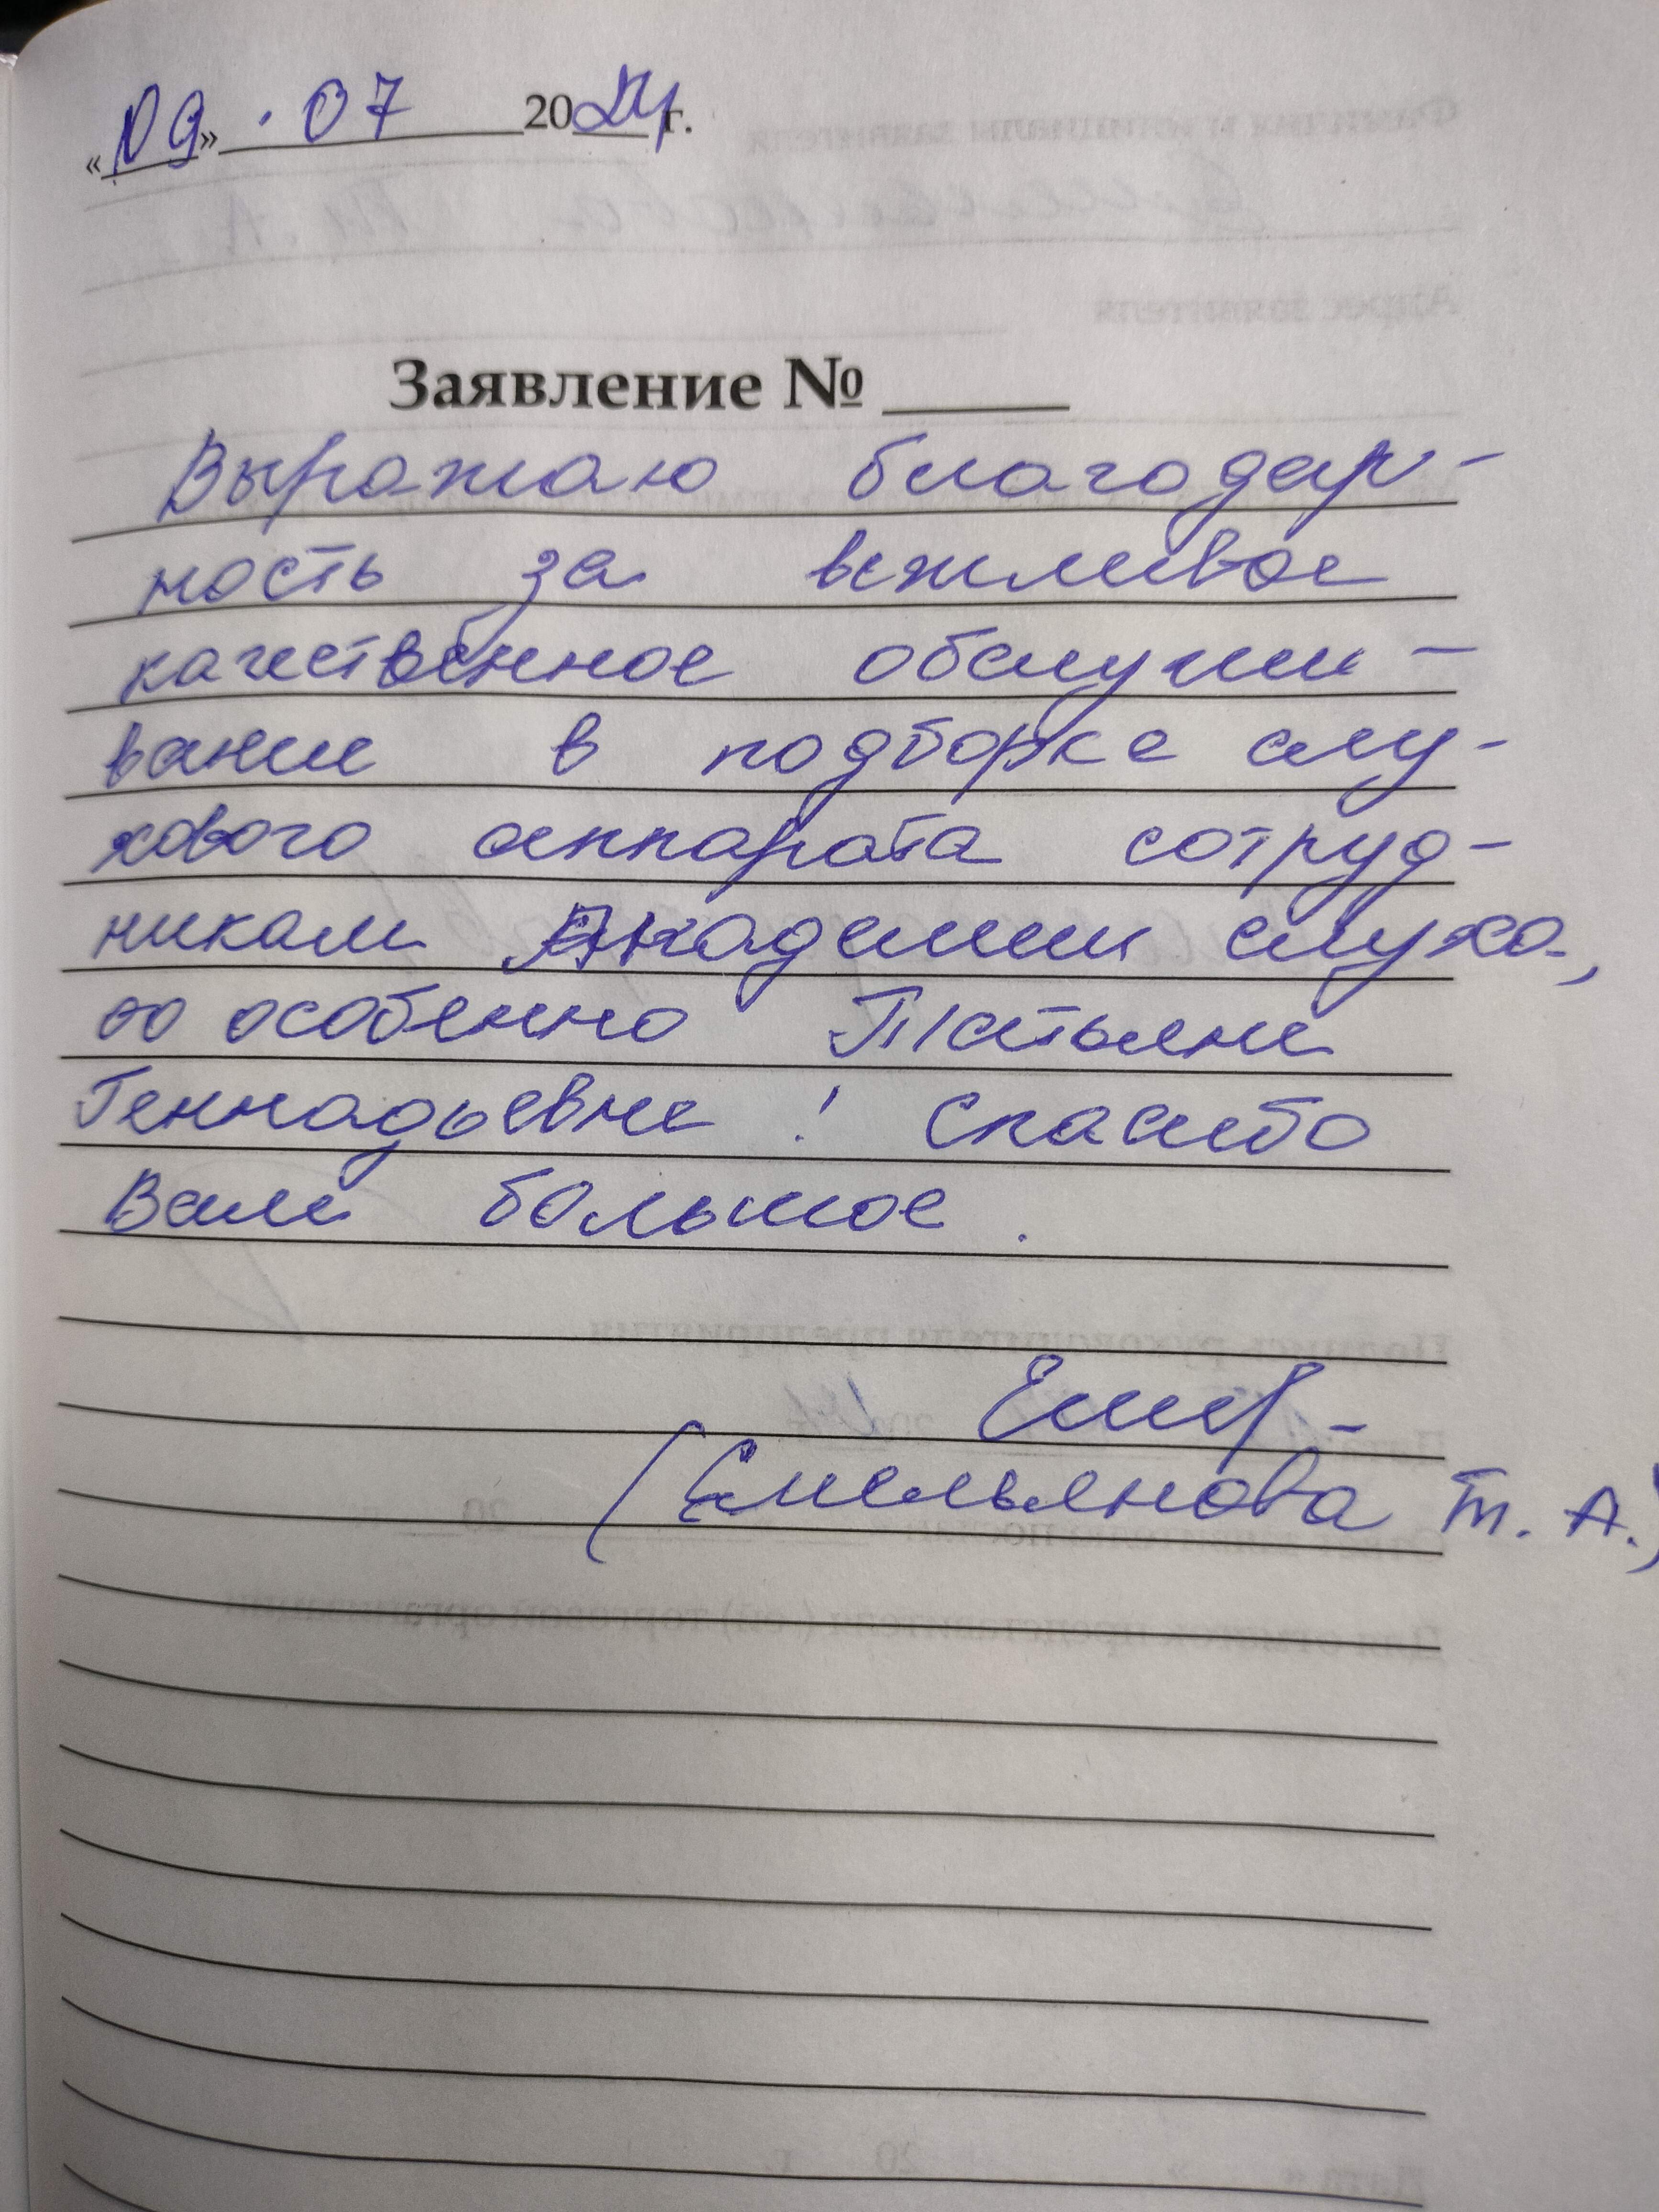 «09» . 07 2024 г.
Заявление №
Выражаю благодар-
ность за вежливое
качественное обслужи-
вание в подборке слу-
хового аппарата сотруд-
никам Академии слуха,
а особенно Татьяне
Геннадьевне! Спасибо
Вам большое.
(Емельянова Т. А.)